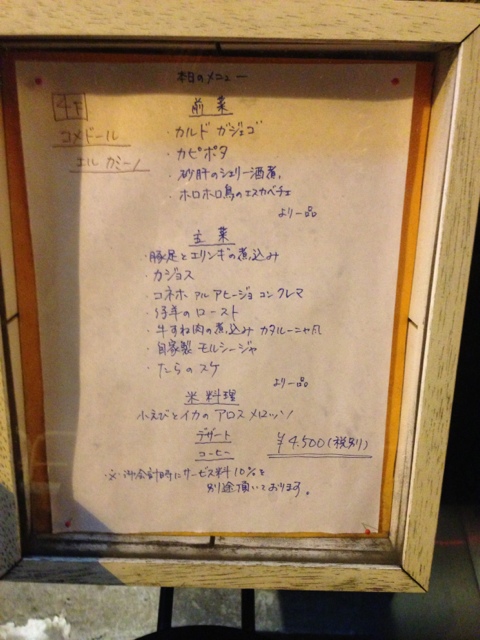 本日のメニュー
4F
コメドール
エル カミーノ
前菜
・カルド ガジェゴ
・カピポタ
・砂肝のシェリー酒煮,
・ホロホロ鳥のエスカベチェ
より一品
主菜
・豚足とエリンギの煮込み
・カジョス
・コネホ アル アヒージョ コン クレマ
・仔羊のロースト
・牛すね肉の煮込み カタルーニャ風
・自家製 モルシージャ
・たらのスケ
より一品
米料理
小えびとイカのアロス メロッソ
デザート
コーヒー
¥4,500(税別)
※御会計時にサービス料10%を
別途頂いております。